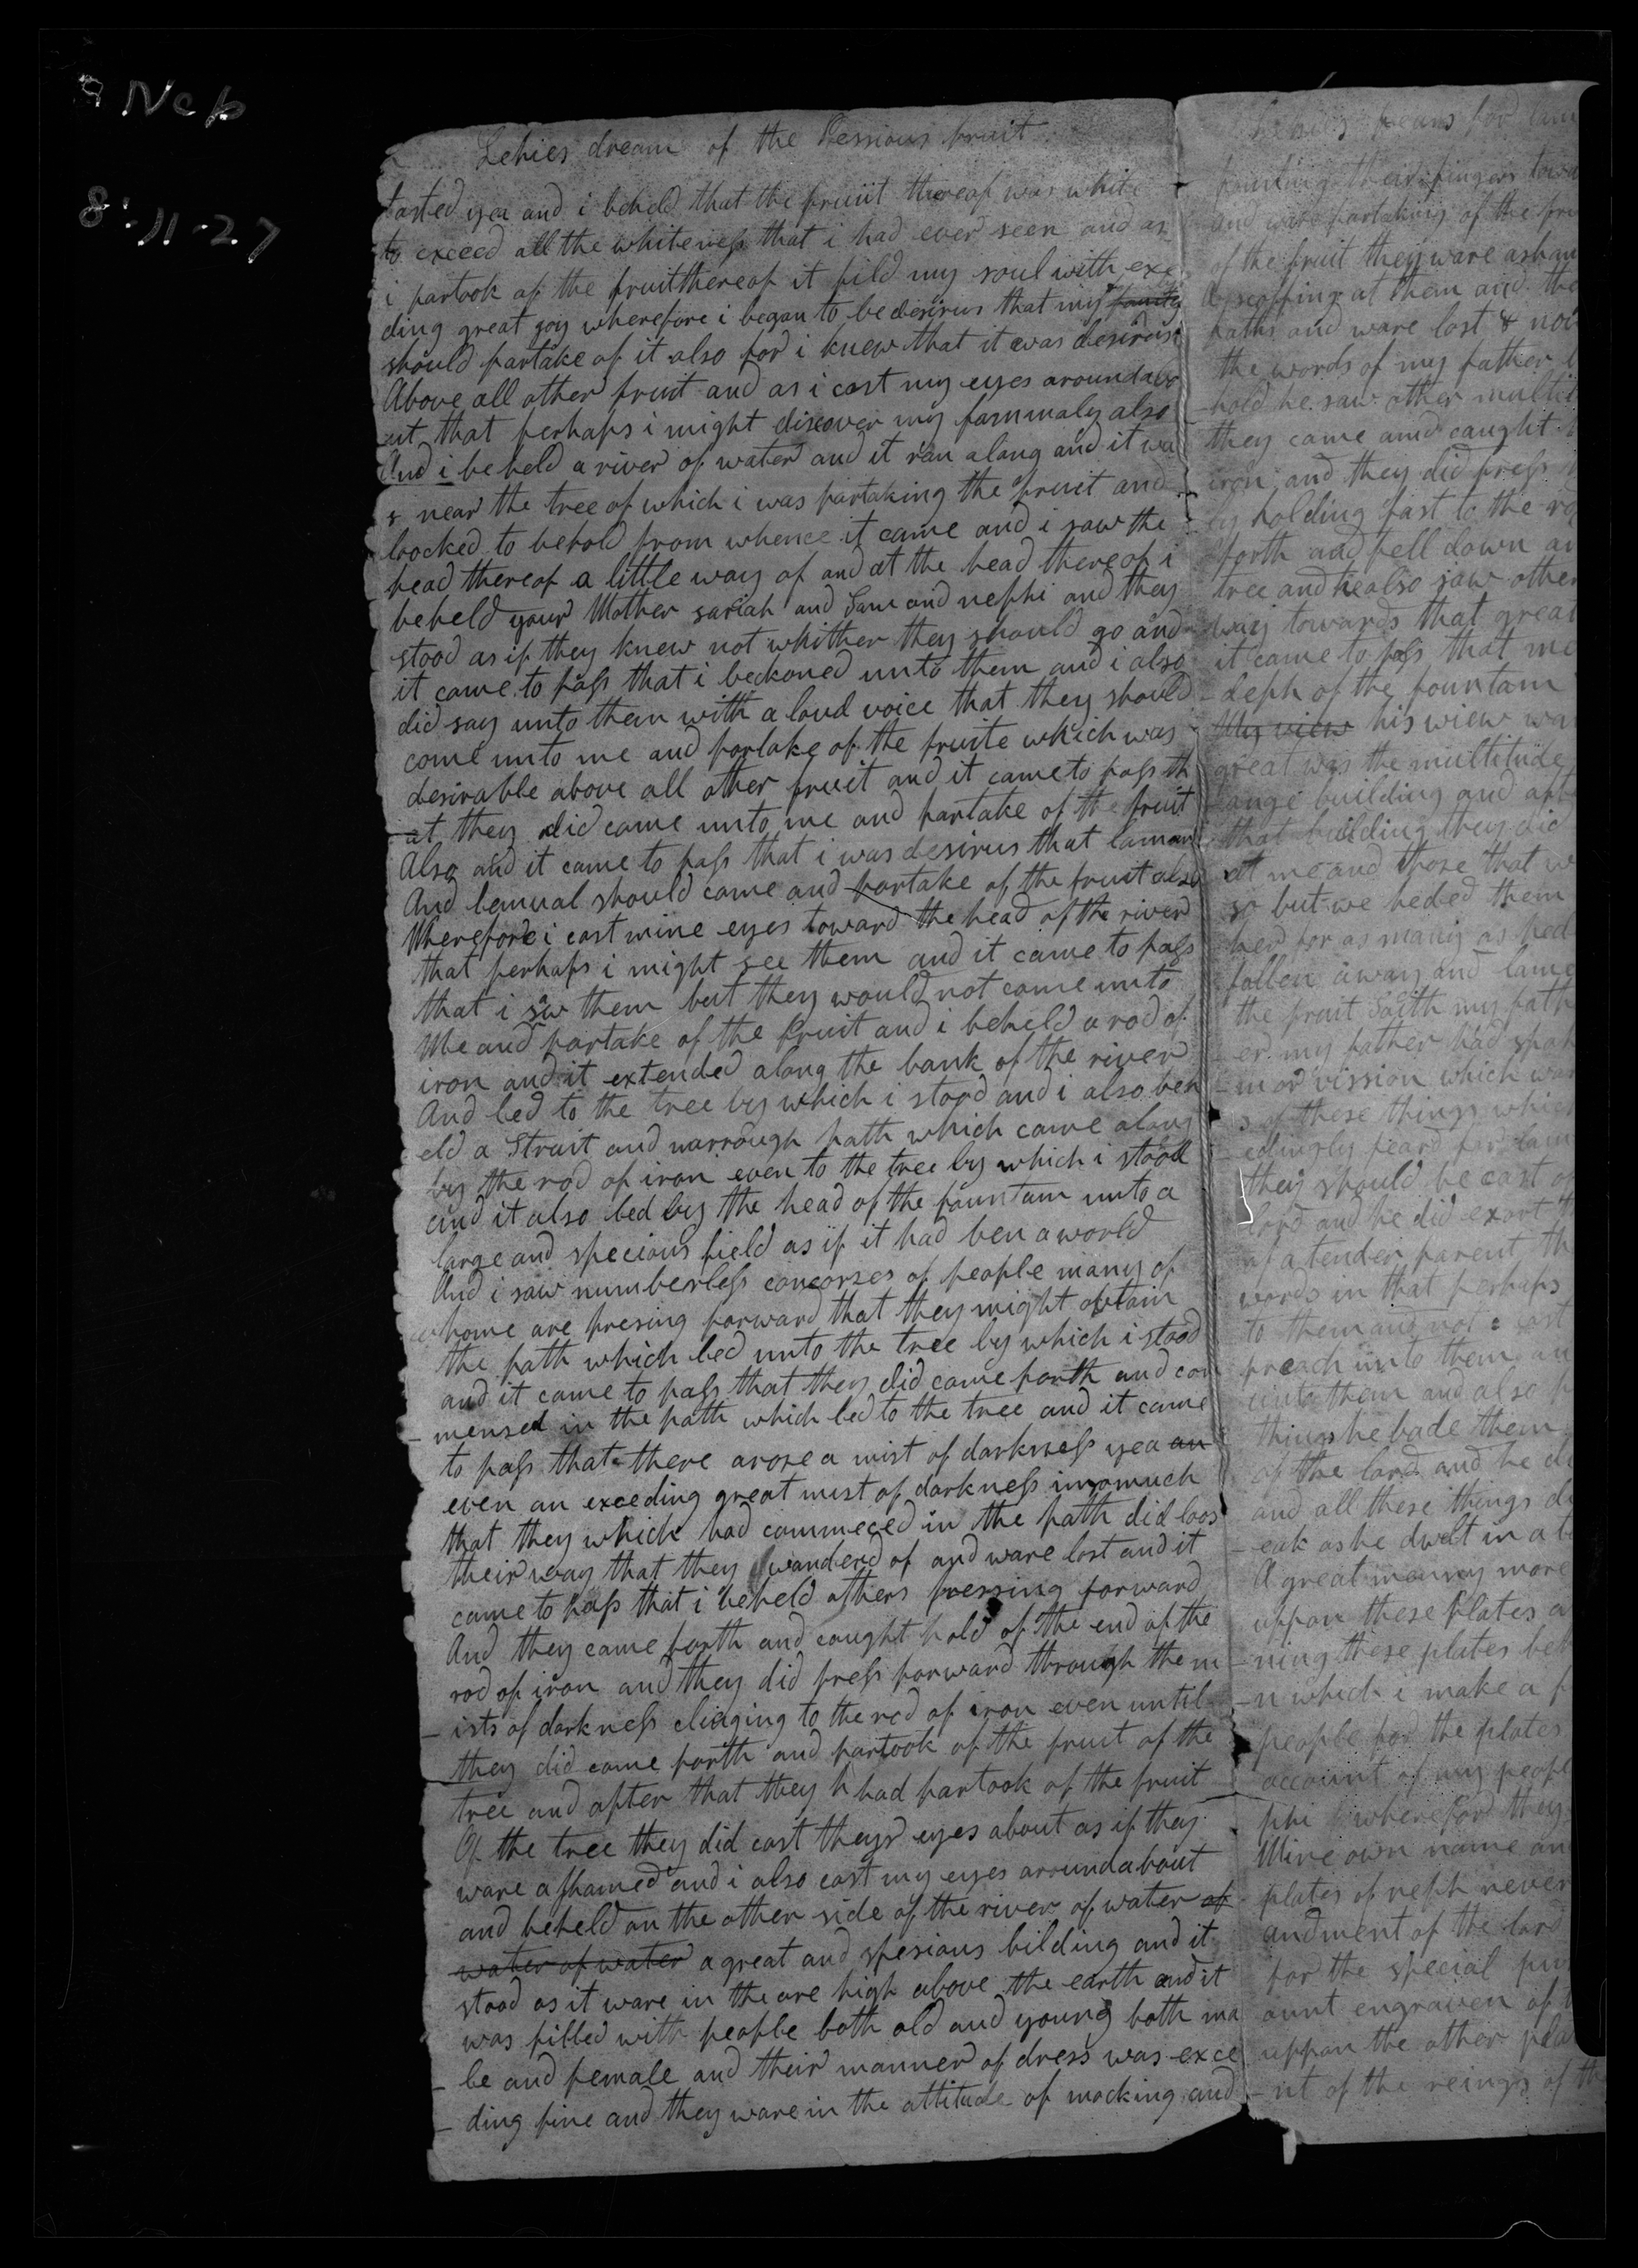 Nep
8:11-27
Lehies dream of the Pessious fruit
tasted yea and i beheld that the fruiit thereof was white
to exceed all the whiteness that i had ever seen and as
i partook of the fruit thereof it fild my soul with exe
ding great goy wherefore i began to be desirus that my family
should partake of it also for i knew that it was desirus
Above all other fruit and as i cast my eyes around abo
ut that perhaps i might discover my fammaly also
And i be held a river of water and it ran along and it wa
s near the tree of which i was partaking the fruit and
loocked to behold from whence it came and i saw the
head thereof a little way of and at the head thereof i
beheld your Mother sariah and Sam and nephi and they
stood as if they knew not whither they should go and
it came to pass that i beckoned unto them and i also
did say unto them with a loud voice that they should
come unto me and partake of the fruite which was
desirable above all other fruit and it came to pass th
-at they did come unto me and partake of the fruit
Also and it came to pass that i was desirus that laman
And lemual should come and partake of the fruit also
Wherefore i cast mine eyes toward the head of the river
that perhaps i might see them and it came to pass
that i saw them but they would not come unto
Me and partake of the fruit and i beheld a rod of
iron and it extended along the bank of the river
And led to the tree by which i stood and i also beh
eld a Strait and narrough path which came along
by the rod of iron even to the tree by which i stood
and it also led by the head of the fountain unto a
large and specious field as if it had ben a world
And i saw numberless concorses of people many of
whome are presing forward that they might obtain
the path which led unto the tree by which i stood
and it came to pass that they did come forth and com
-mensed in the path which led to the tree and it came
to pass that there arose a mist of darkness yea an
even an exceding great mist of darkness insomuch
that they which had commeced in the path did loos
their way that they wanderd of and ware lost and it
came to pass that i beheld others pressing forward
And they came forth and caught hold of the end of the
rod of iron and they did press forward through the m
-ists of darkness clinging to the rod of iron even until
they did come forth and partook of the fruit of the
tree and after that they h had partook of the fruit
Of the tree they did cast theyr eyes about as if they
ware ashamed and i also cast my eyes arround about
and beheld on the other side of the river of water of
water of water a great and spesious bilding and it
stood as it ware in the are high above the earth and it
was filled with people both old and young both ma
-le and female and their manner of dress was exce
-ding fine and they ware in the attitude of mocking and
for lam
pointing their fingers towa
and ware partaking of the fru
of the fruit they ware asham
scoffing at them and the
paths and ware lost & no
the words of my father
-hold he saw other multit
they came and caught
iron and they did press
by holding fast to the ro
forth and fell down an
tree and he also saw other
way towards that great
it came to pass that ma
-deph of the fountain
My view his wiew wa
great was the multitude
ange building and aft
that building they did
at me and those that w
so but we heded them
hed for as many as hed
fallen away and lam
the fruit saith my fath
er my father had spok
-m or vission which was
s of these things which
-edingly feard for lam
they should be cast of
lord and he did exort
of a tender parent th
words in that perhaps
to them and not cast
preach unto them an
unto them and also p
things he bade them
of the lord and he di
and all these things d
-eak as he dwelt in a t
A great manny more
uppon these plates a
-ning these plates beh
-n which i make a f
people for the plates
account of my peopl
phi wherefore they
Mine own name an
plates of neph never
andment of the lord
for the special pur
ount engraven of t
uppon the other pla
-nt of the reings of th